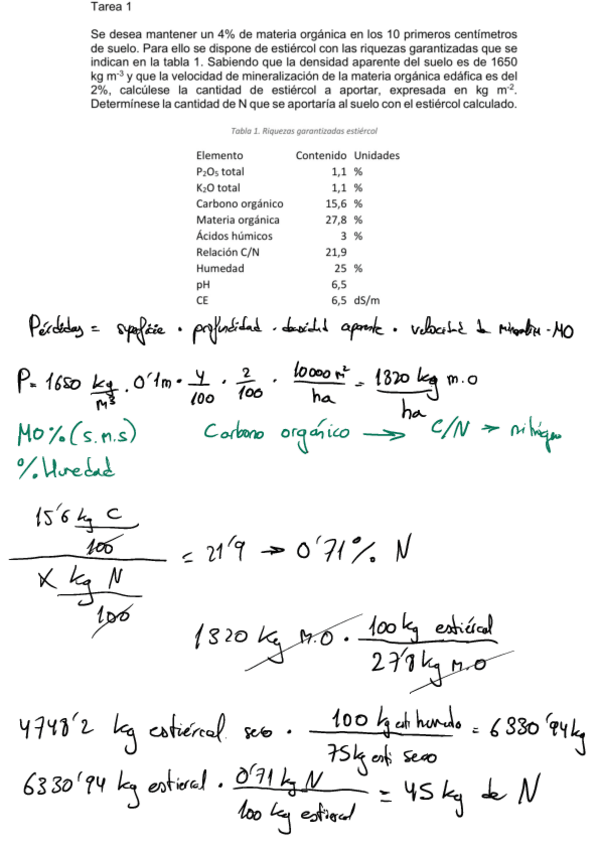 Tarea 1
Se desea mantener un 4% de materia orgánica en los 10 primeros centímetros
de suelo. Para ello se dispone de estiércol con las riquezas garantizadas que se
indican en la tabla 1. Sabiendo que la densidad aparente del suelo es de 1650
kg m-3 y que la velocidad de mineralización de la materia orgánica edáfica es del
2%, calcúlese la cantidad de estiércol a aportar, expresada en kg m-2.
Determínese la cantidad de N que se aportaría al suelo con el estiércol calculado.
Tabla 1. Riquezas garantizadas estiércol
Elemento Contenido Unidades
P2O5 total 1,1 %
K2O total 1,1 %
Carbono orgánico 15,6 %
Materia orgánica 27,8 %
Ácidos húmicos 3 %
Relación C/N 21,9
Humedad 25 %
pH 6,5
CE 6,5 dS/m
Pérdidas = superficie · profundidad · densidad aparente · velocidad de · MO
P = 1650 kg/m³ · 0'1m · 4/100 · 2/100 · 10000 m²/ha = 1320 kg m.o/ha
MO % (s.m.s) Carbono orgánico → C/N → nitrógeno
% Humedad
15'6 kg C/100
/ X kg N/100 = 21'9 → 0'71 % N
1320 kg M.O · 100 kg estiércol / 27'8 kg M.O
4748'2 kg estiércol seco · 100 kg est humedo / 75 kg esti seco = 6330'94 kg
6330'94 kg estiercol · 0'71 kg N / 100 kg estiercol = 45 kg de N